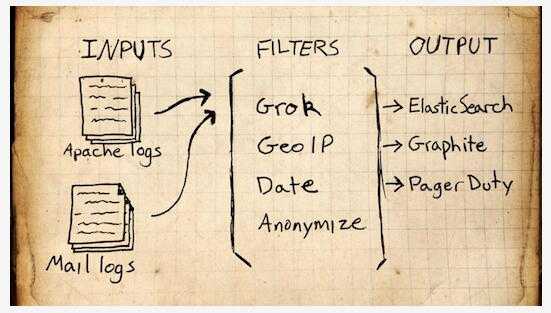 INPUTS
FILTERS
OUTPUT
Apache logs
Mail logs
Grok
GeoIP
Date
Anonymize
→ ElasticSearch
→ Graphite
→ PagerDuty